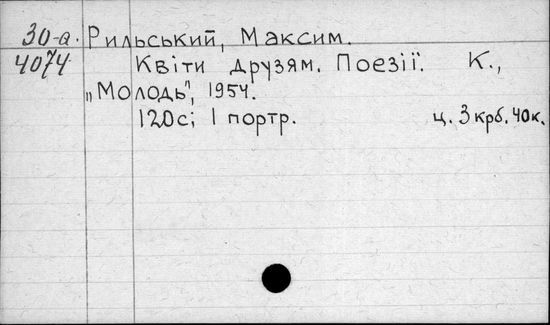 30-а. Рильський, Максим.
4074 Квіти друзям. Поезії. К.,
„Молодь", 1954.
120с; 1 портр. ц. 3 крб. 40к.